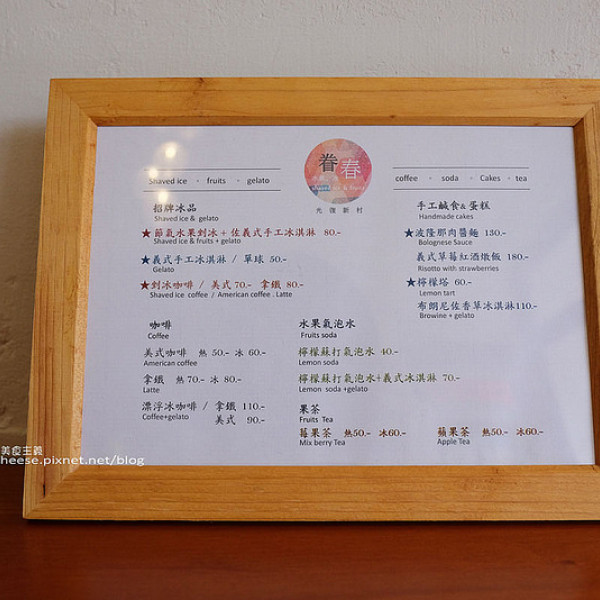 眷春
光復新村
Shaved ice · fruits · gelato
coffee · soda · Cakes · tea
招牌冰品
Shaved ice & gelato
★節氣水果剉冰+佐義式手工冰淇淋 80.-
Shaved ice & fruits + gelato
★義式手工冰淇淋 / 單球 50.-
Gelato
★剉冰咖啡 / 美式70.- 拿鐵 80.-
Shaved ice coffee / American coffee . Latte
手工鹹食& 蛋糕
Handmade cakes
★波隆那肉醬麵 130.-
Bolognese Sauce
義式草莓紅酒燉飯 180.-
Risotto with strawberries
★檸檬塔 60.-
Lemon tart
布朗尼佐香草冰淇淋110.-
Browine + gelato
咖啡
Coffee
美式咖啡 熱 50.- 冰 60.-
American coffee
拿鐵 熱 70.- 冰 80.-
Latte
漂浮冰咖啡 / 拿鐵 110.-
美式 90.-
Coffee+gelato
水果氣泡水
Fruits soda
檸檬蘇打氣泡水 40.-
Lemon soda
檸檬蘇打氣泡水+義式冰淇淋 70.-
Lemon soda +gelato
果茶
Fruits Tea
莓果茶 熱50.- 冰60.-
Mix berry Tea
蘋果茶 熱50.- 冰60.-
Apple Tea
美食主義
heese.pixnet.net/blog